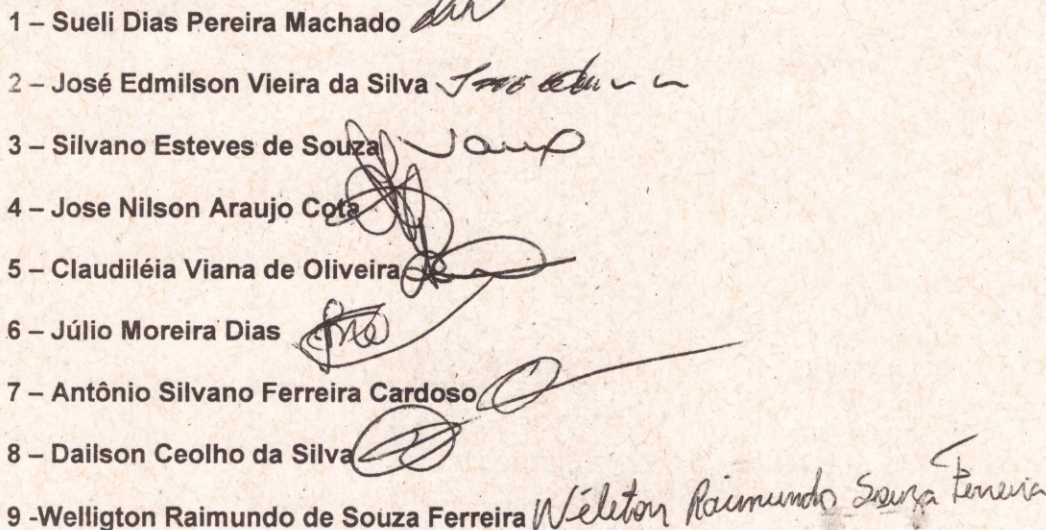 1 – Sueli Dias Pereira Machado
2 – José Edmilson Vieira da Silva
3 – Silvano Esteves de Souza
4 – Jose Nilson Araujo Cota
5 – Claudiléia Viana de Oliveira
6 – Júlio Moreira Dias
7 – Antônio Silvano Ferreira Cardoso
8 – Dailson Ceolho da Silva
9 -Welligton Raimundo de Souza Ferreira Wéleton Raimundo Souza Ferreira